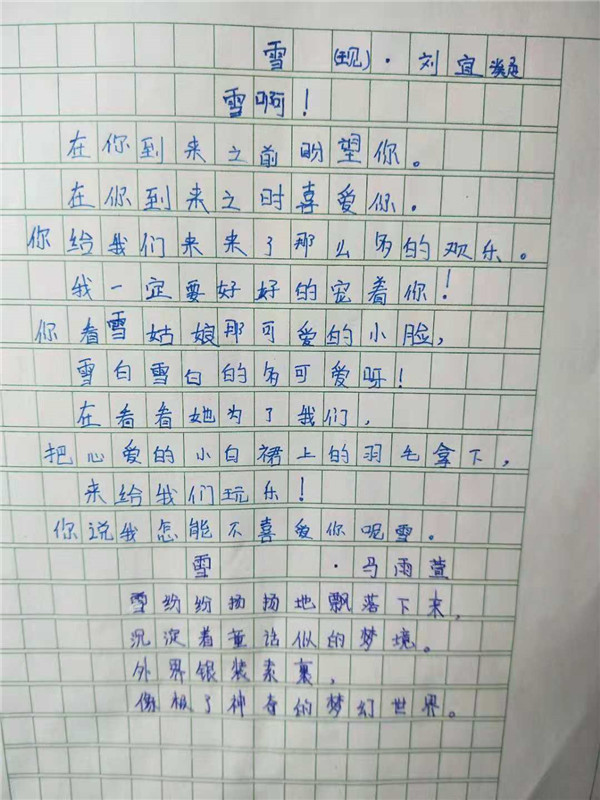 雪 (现)·刘宜
雪啊！
在你到来之前盼望你。
在你到来之时喜爱你.
你给我们来来了那么多的欢乐。
我一定要好好的宠着你！
你看雪姑娘那可爱的小脸,
雪白雪白的多可爱呀！
在看看她为了我们,
把心爱的小白裙上的羽毛拿下,
来给我们玩乐！
你说我怎能不喜爱你呢雪。
雪 ·马雨萱
雪纷纷扬扬地飘落下来,
沉淀着童话似的梦境。
外界银装素裹,
像极了神奇的梦幻世界。